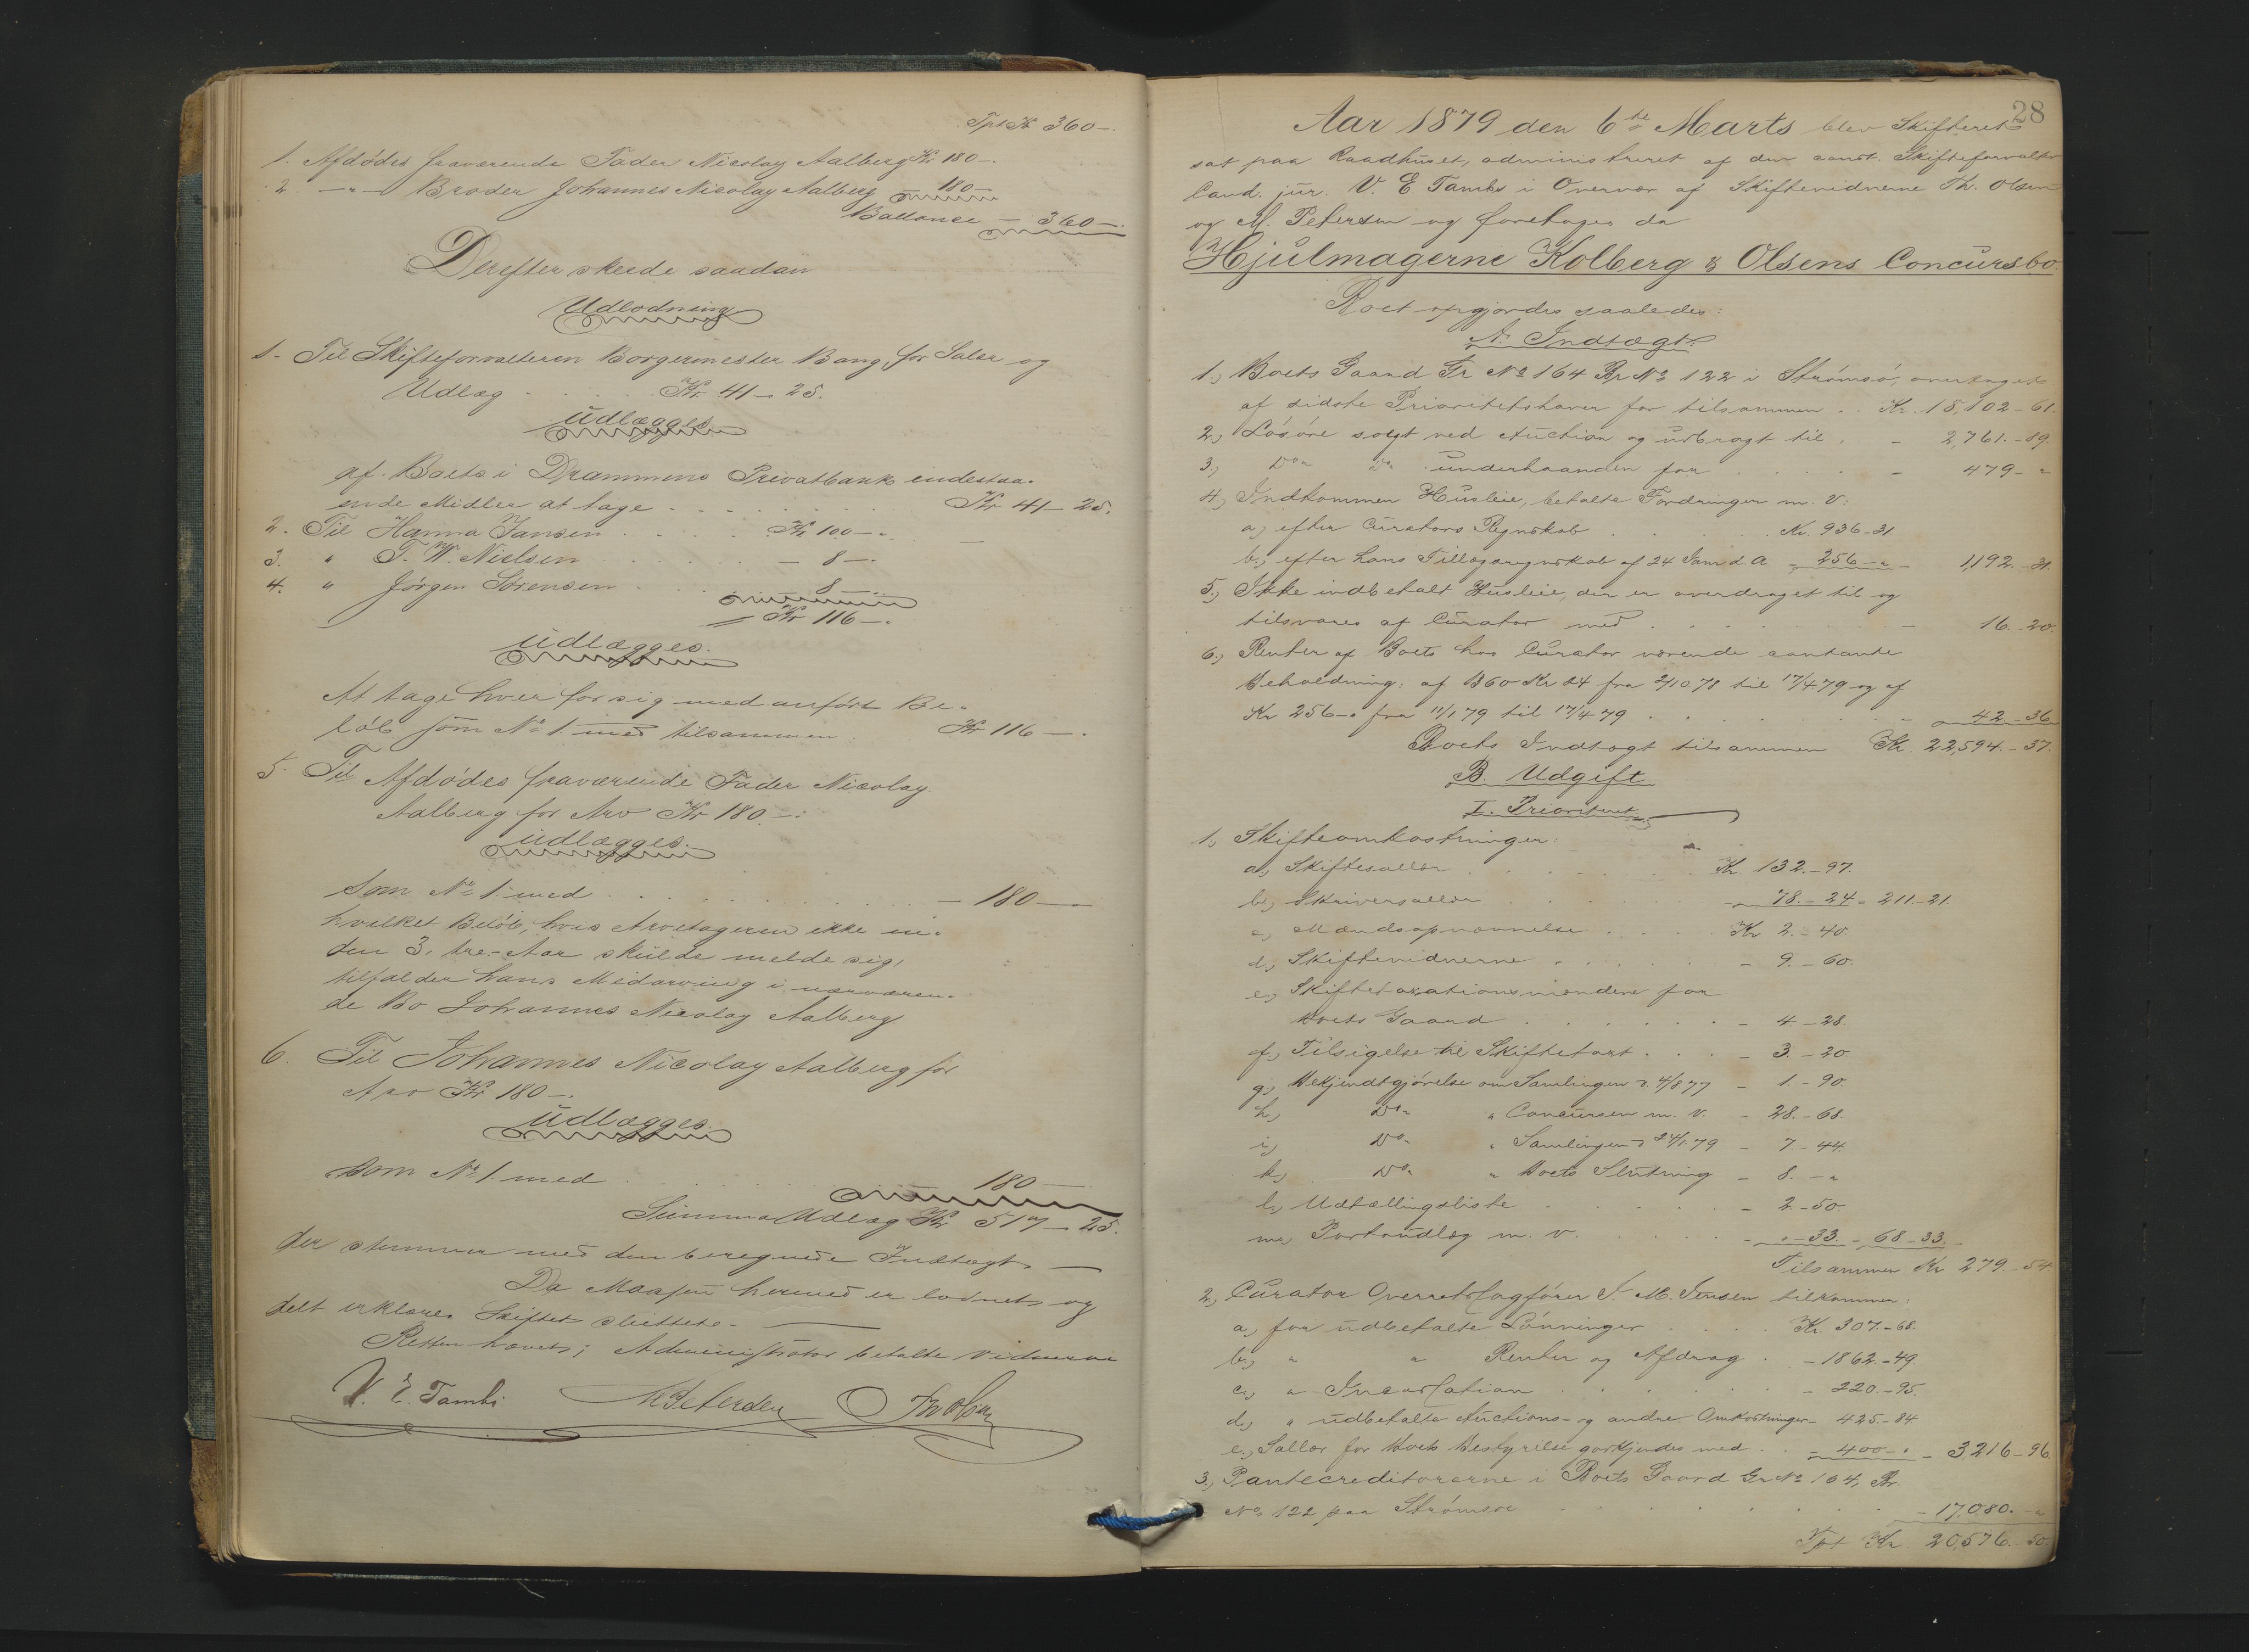 Tpt Kr 360 –.
1. Afdødes fraværende Fader Nicolay Aalberg Kr 180 –.
2. – " – Broder Johannes Nicolay Aalberg – 180 –
Ballance – 360 –.
Derefter skeede saadan
Udlodning
1- Til Skifteforvalteren Borgermester Bang for Salær og
Udlæg . . . Kr 41 – 25.
udlægges
af Boets i Drammens Privatbank indestaa-
ende Midler at tage . . . Kr 41 – 25.
2. Til Hanna Jansen . . . Kr 100 – "
3. " T. W. Nielsen . . . – 8 –.
4. " Jørgen Sørensen . . . 8 –
Kr 116 –.
udlægges.
At tage hver for sig med anført Be-
løb som No 1. med tilsammen . Kr 116 –.
5. Til Afdødes fraværende Fader Nicolay
Aalberg for Arv Kr 180 –:
udlægges.
Som No 1. med . . . – 180 –
hvilket Beløb, hvis Arvetageren ikke in-
den 3, tre - Aar skulde melde sig,
tilfalder hans Medarving i nærværen-
de Bo Johannes Nicolay Aalberg
6. Til Johannes Nicolay Aalberg for
Arv Kr 180 –.
udlægges.
Som No 1. med . . . 180 –
Summa Udlæg Kr 517 – 25.
der stemmer med den beregnede Indtægt. –
Da Massen hermed er lodnet og
delt erklæres Skiftet sluttet. –
Retten hævet; Administrator betalte Vidnerne
V. E. Tambs M Petersen Th Olsen
28
Aar 1879 den 6te Marts blev Skifteret
sat paa Raadhuset, administreret af den const. Skifteforvalter
Cand. jur. V. E Tambs i Overvær af Skiftevidnerne Th. Olsen
og M. Petersen og foretages da
Hjulmagerne Kolberg & Olsens Concursbo.
Boet opgjordes saaledes:
A. Indtægt.
1,) Boets Gaard Gr No 164 Br No 122 i Strømsø, overtaget
af sidste Prioritetshaver for tilsammen . . Kr. 18,102 – 61.
2,) Løsøre solgt ved Auction og udbragt til . – 2,761. – 89.
3,) Do " Do " underhaanden for . . . – 479 – "
4,) Indkommen Husleie, betalte Fordringer m. v:
a,) efter Curators Regnskab . . . Kr. 936 – 31
b,) efter hans Tillægsregnskab af 24 Jan d. A. – 256 – " – 1,192. – 31.
5,) Ikke indbetalt Husleie, der er overdraget til og
tilsvares af Curator med . . . – 16. – 20.
6,) Renter af Boets hos Curator værende contante
Beholdning: af 1360 Kr 24 fra 2/10 78 til 17/4 79 og af
Kr 256 – " fra 11/1 79 til 17/4 79 . . . – 42 – 36
Boets Indtægt tilsammen Kr. 22,594. – 37.
B. Udgift
I. Prioriteret.
1,) Skifteomkostninger:
a,) Skiftesallær . . . Kr. 132. – 97.
b,) Skriversallær . . . – 78. – 24 – 211. – 21.
c,) Mændsopnævnelse . . . Kr 2. – 40.
d,) Skiftevidnerne . . . – 9. – 60.
e,) Skiftetaxationsmændene for
Boets Gaard . . . – 4 – 28.
f,) Tilsigelse til Skiftetaxt . . . – 3. – 20
g,) Bekjendtgjørelse om Samlingen d. 4/8 77 – 1. – 90.
h,) Do " " Concursen m. v. – 28. – 68.
i,) Do " " Samlingen d 24/1 79 – 7 – 44.
k,) Do " " Boets Slutning – 8. – "
l,) Udtællingsliste . . . – 2. – 50.
m,) Portoudlæg m. v. . . . – " – 33. – 68. – 33.
Tilsammen Kr 279. – 54
2,) Curator Overretssagfører J. M. Jensen tilkommer:
a,) for udbetalte Lønninger . . . Kr. 307. – 68.
b,) " " Renter og Afdrag . – 1862. – 49.
c,) " Incassation . . . – 220. – 95.
d,) " udbetalte Auctions- og andre Omkostninger – 425. – 84
e,) Sallær for Boets Bestyrelse godkjendes med . . – 400 – " – 3,216 – 96
3,) Pantecreditorerne i Boets Gaard Gr No 164, Br.
No 122 paa Strømsø . . . – 17,080. – "
Tpt Kr. 20,576. – 50.